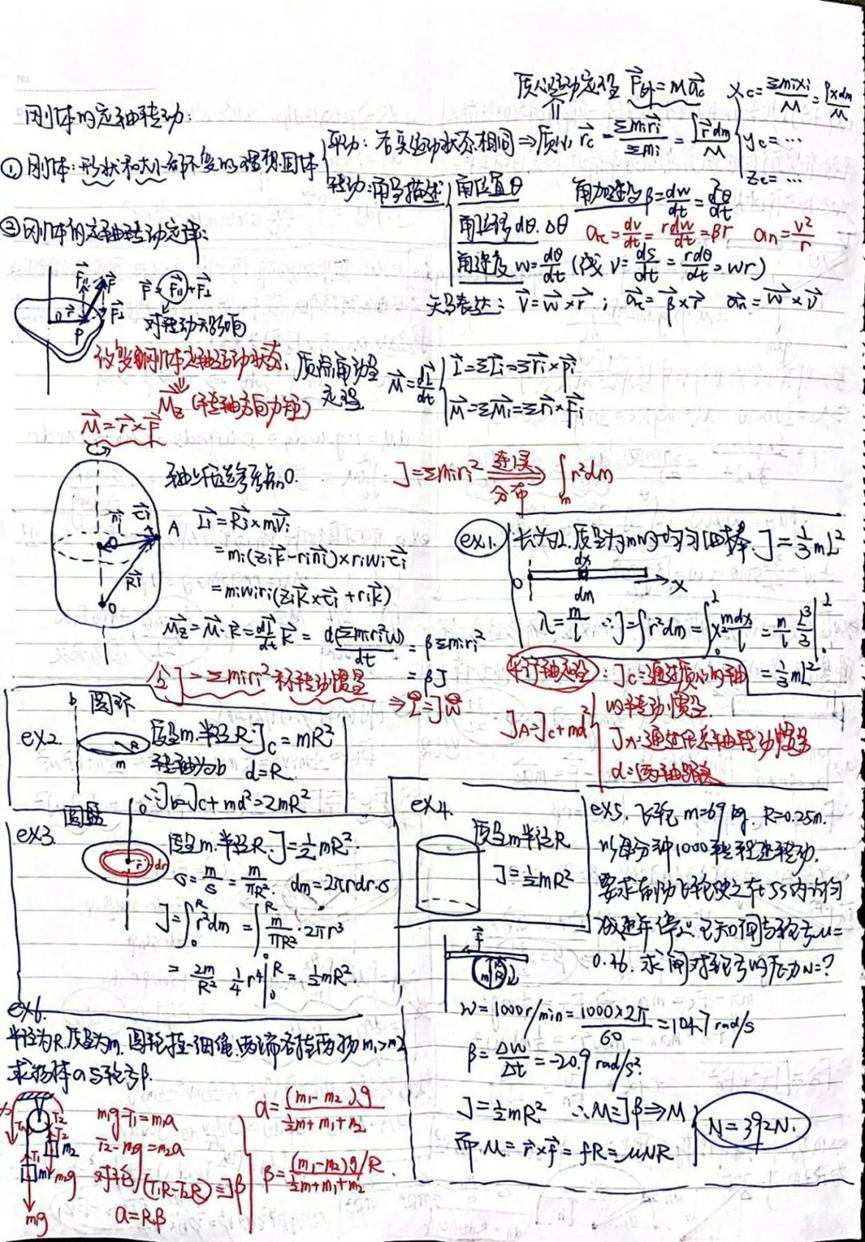 质心运动定理 F外=Mac
xc=Σmixi/M=∫xdm/M
yc=…
zc=…
刚体的定轴转动:
①刚体:形状和大小都不变的理想固体
平动:各点运动状态相同⇒质心 rc=Σmiri/Σmi=∫rdm/M
转动:角量描述
角位置θ
角位移dθ.Δθ
角速度w=dθ/dt(线v=ds/dt=rdθ/dt=wr)
角加速度β=dw/dt=d²θ/dt
aτ=dv/dt=rdw/dt=βr an=v²/r
矢量表达: v=w×r; aτ=β×r an=w×v
②刚体的定轴转动定律:
F=F11+F⊥
对转动无影响
改变刚体定轴运动状态.
Mz(转轴方向力矩)
M=r×F
质点角动量定理 M=dL/dt
L=ΣLi=Σri×Pi
M=ΣMi=Σri×Fi
轴上任选参考点O.
J=Σmiri² 连续分布 ∫m r²dm
Li=Ri×mVi
=mi(zik-rini)×riwiτi
=miwiri(zik×τi+rik)
Mz=M·k=dL/dt·k=d(Σmiri²w)/dt=βΣmiri²
=βJ
令J=Σmiri²称转动惯量
⇒L=Jw
ex1. 长为L.质量为m的均匀细棒 J=1/3mL²
O dx dm x
λ=m/l ∴J=∫r²dm=∫x²mdx/l=m/l L³/3
=1/3mL²
平行轴定理:
JA=Jc+md²
Jc:通过质心的轴的转动惯量
JA:通过任意轴转动惯量
d:两轴距离
ex2. 圆环
b R m
质量m.半径R.Jc=mR²
转轴为b d=R
∴Jb=Jc+md²=2mR²
ex3. 圆盘
r dr
质量m.半径R.J=1/2mR²
σ=m/s=m/πR². dm=2πrdr·σ
J=∫0R r²dm=∫0R m/πR²·2πr³
=2m/R² 1/4r⁴|0R=1/2mR²
ex4.
质量m半径R
J=1/2mR²
ex5.飞轮m=69kg.R=0.25m.
以每分钟1000转转速转动.
要求制动飞轮使之在5s内均匀
减速停止.已知闸与轮子μ=
0.26.求闸对轮子的压力N=?
w=1000r/min=1000×2π/60=104.7rad/s
β=Δw/Δt=-20.9rad/s².
J=1/2mR² ∴M=Jβ⇒M
而M=r×f=fR=μNR
N=392N.
ex6.
半径为R.质量为m.圆轮挂一细绳.两端各挂两物m1>m2
求物体a与轮子β.
m1g-T1=m1a
T2-m2g=m2a
对轮(T1R-T2R)=Jβ
a=Rβ
a=(m1-m2)g/1/2m+m1+m2
β=(m1-m2)g/R/1/2m+m1+m2